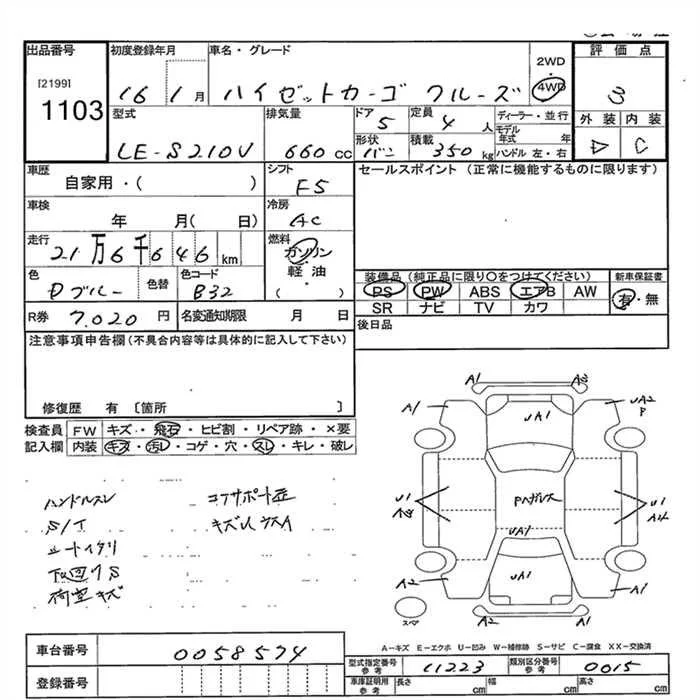 出品番号 初度登録年月 車名・グレード 2WD・4WD 評価点
[2199]
1103
16 1月 ハイゼットカーゴ クルーズ 3
型式 排気量 ドア 5 定員 4人 ディーラー・並行 外装 内装
モデル年式 年
LE-S210V 660cc 形状 バン 積載 350kg ハンドル 左・右 D C
車歴 シフト セールスポイント (正常に機能するものに限ります)
自家用・( ) F5
車検 冷房
年 月( 日) AC
走行 燃料
21万6千646km ガソリン・軽油・( )
色 色替 色コード 装備品 (純正品に限り○をつけてください) 新車保証書
Dブルー B32 PS PW ABS エアB AW 有・無
SR ナビ TV カワ
R券 7,020円 名変通知期限 月 日 後日品
注意事項申告欄(不具合内容等は具体的に記入して下さい)
修復歴 有 〔箇所 〕
検査員 FW キズ・飛石・ヒビ割・リペア跡・×要
記入欄 内装 キズ・汚レ・コゲ・穴・スレ・キレ・破レ
ハンドルスレ コアサポート歪
S/I キズ
荷室キズ
A1
A1 UA1 UA2
P
U1 U1
UA1
A2 UA1 A1
スペア A2 A1
A-キズ E-エクボ U-凹み W-補修跡 S-サビ C-腐食 XX-交換済
車台番号 0058574
型式指定番号 参考 11223 類別区分番号 参考 0015
登録番号
車庫証明用 参考 長さ cm 幅 cm 高さ cm